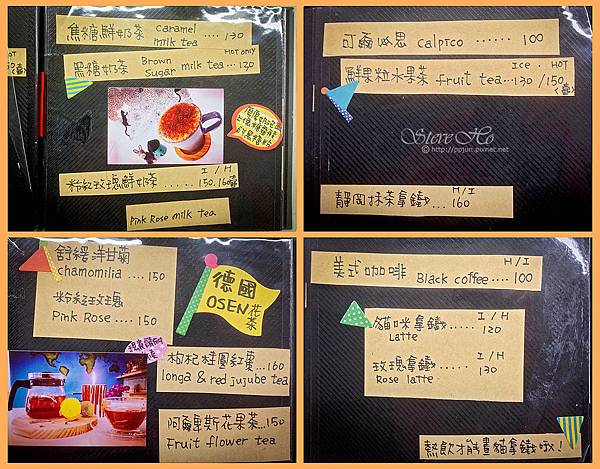 焦糖鮮奶茶 caramel milk tea .... 130
黑糖奶茶 Brown sugar milk tea ... 120
HOT only
粉紅玫瑰鮮奶茶 ...... 150. 160(壺)
I / H
Pink Rose milk tea
可爾必思 calpico ...... 100
鮮果粒水果茶 fruit tea...130 / 150(壺)
Ice . HOT
Steve Ho
© http://ppjun.pixnet.net
靜岡抹茶拿鐵... 160
H / I
舒緩洋甘菊
chamomilia .... 150
粉紅玫瑰
Pink Rose .... 150
德國
OSEN花茶
枸杞桂圓紅棗...160
longa & red jujube tea
阿爾卑斯花果茶...150
Fruit flower tea
美式咖啡 Black coffee.... 100
H / I
貓咪拿鐵..... 120
I / H
Latte
玫瑰拿鐵..... 130
I / H
Rose latte
熱飲才能畫貓拿鐵哦!